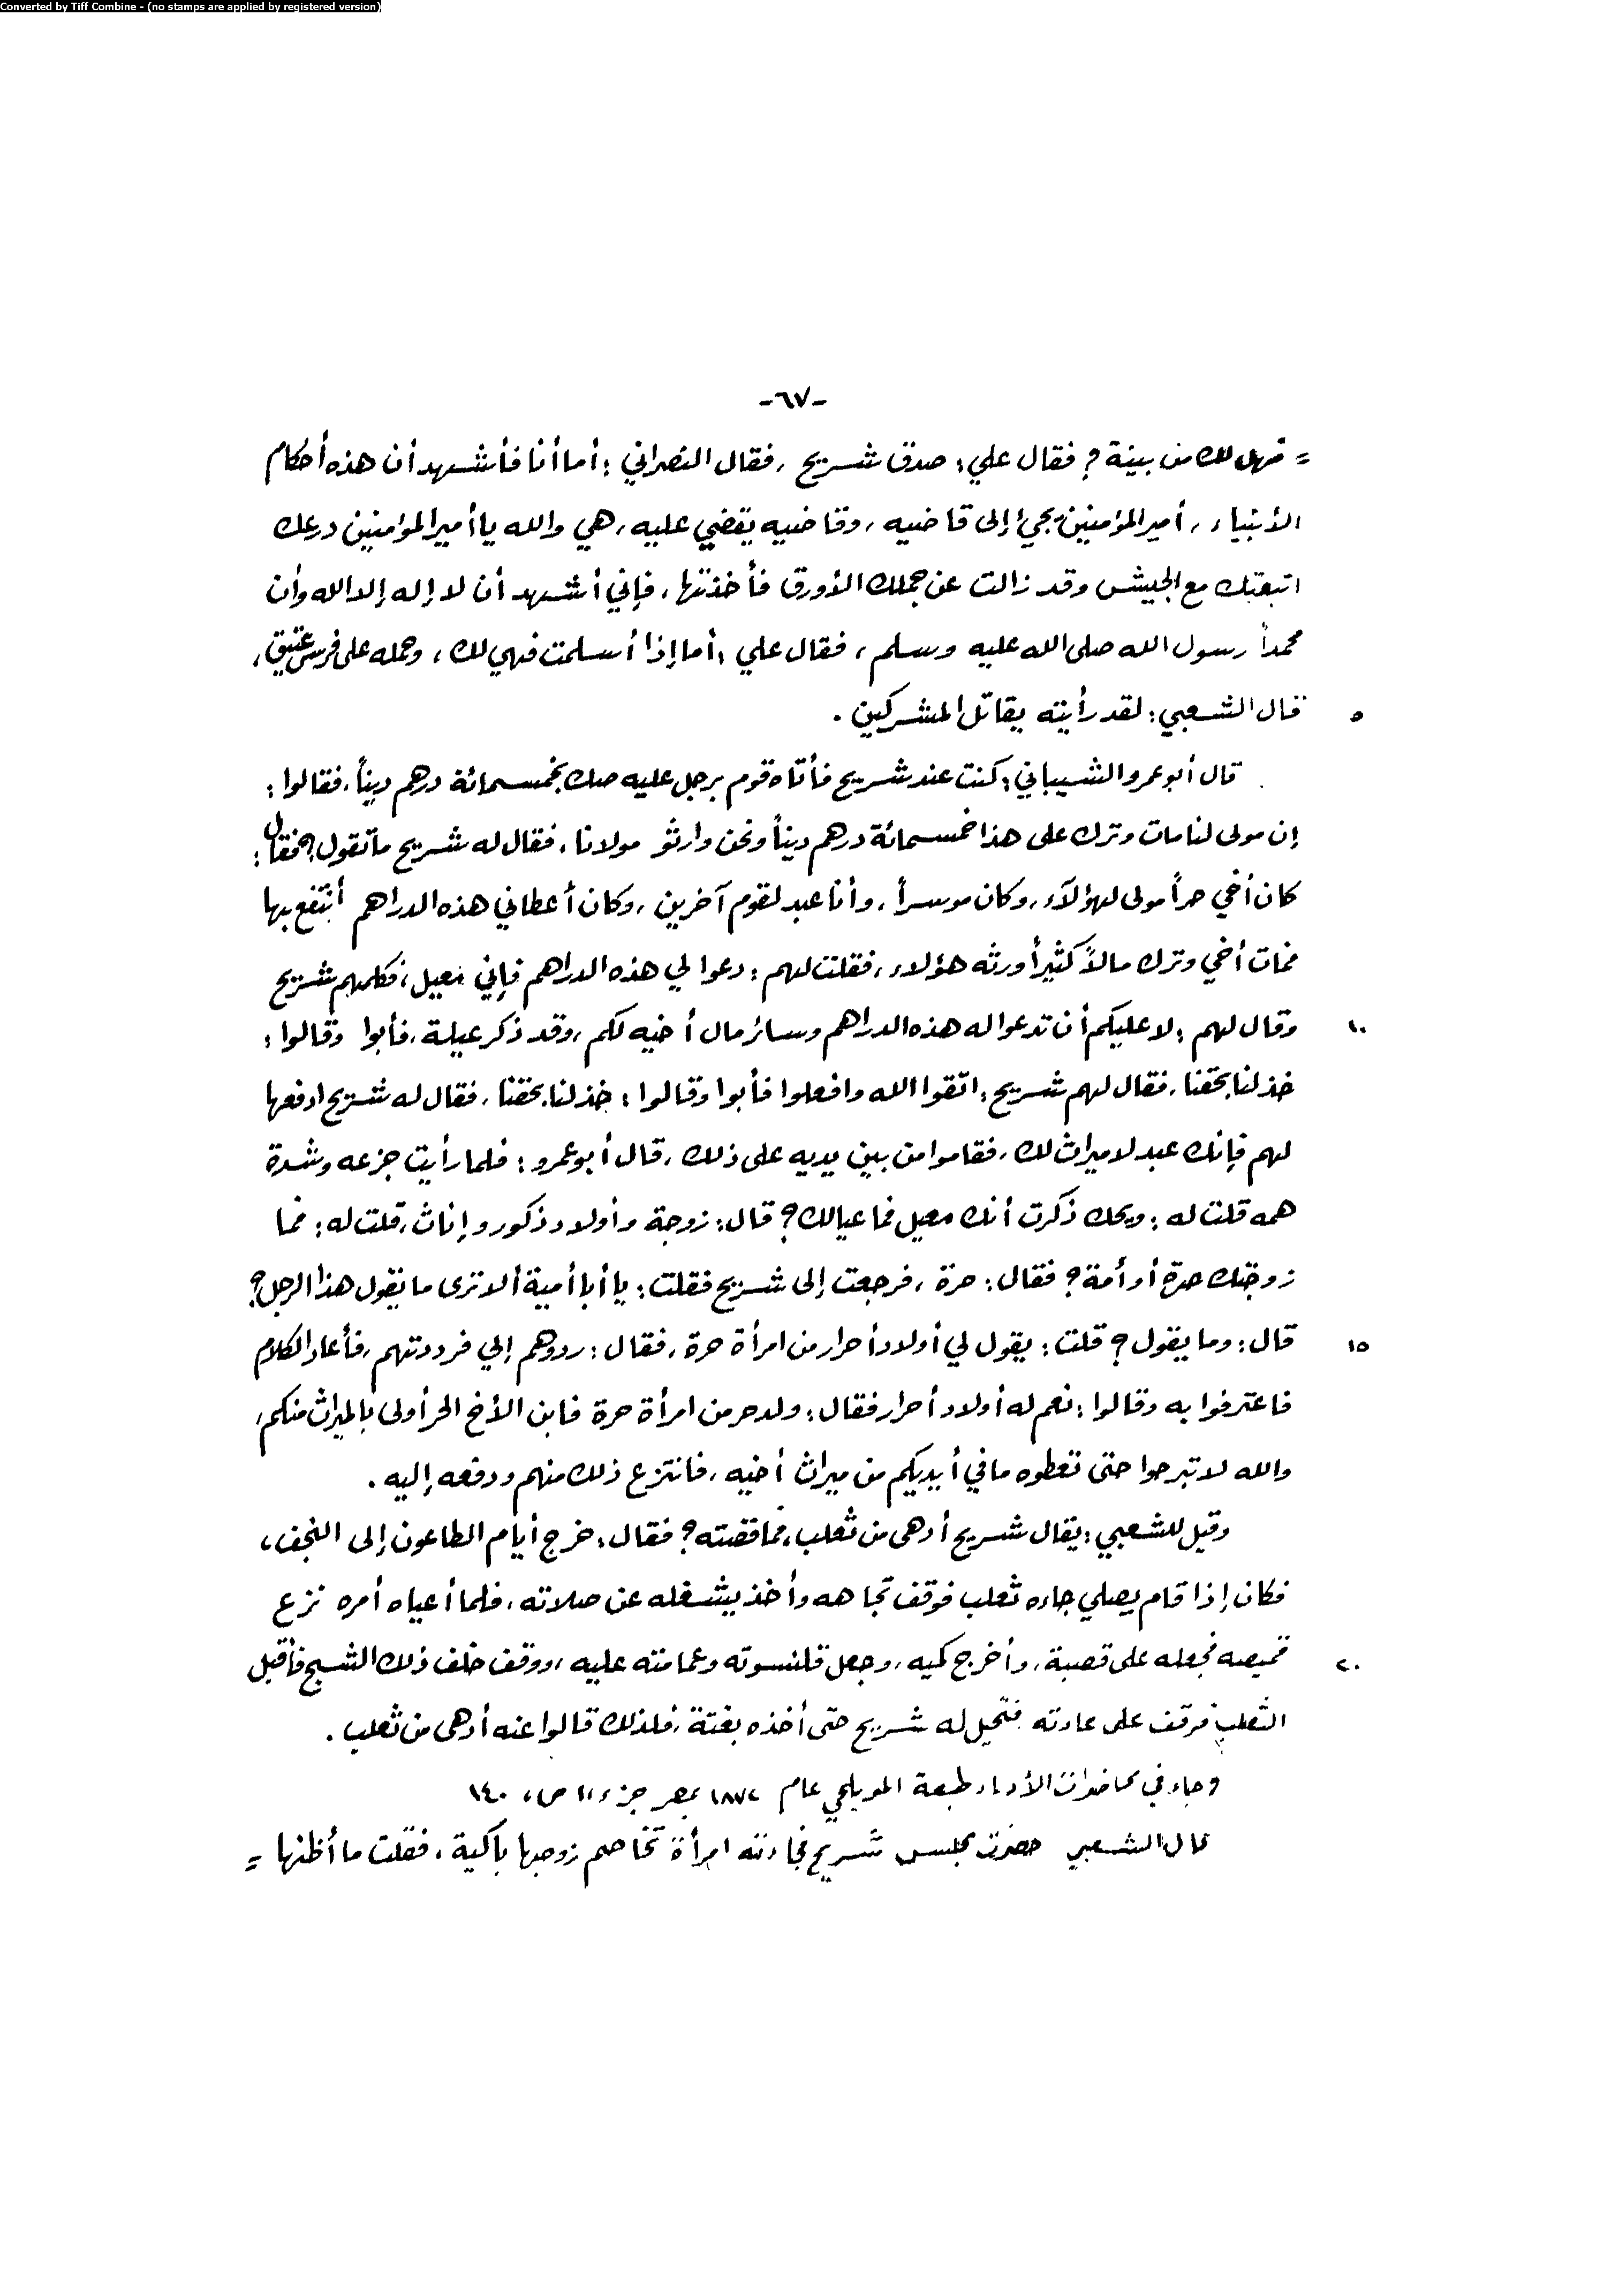 Converted by Tiff Combine - (no stamps are applied by registered version)
-٦٧-
= فهل لك من بينة ؟ فقال علي : صدق شريح ، فقال النصراني : أما أنا فأشهد أن هذه أحكام
الأنبياء ، أمير المؤمنين يجيء إلى قاضيه ، وقاضيه يقضي عليه ، هي والله يا أمير المؤمنين درعك
اتبعتك مع الجيش وقد زالت عن جملك الأورق فأخذتها ، فإني أشهد أن لا إله إلا الله وأن
محمداً رسول الله صلى الله عليه وسلم ، فقال علي : أما إذا أسلمت فهي لك ، وحمله على فرس عتيق ،
٥ قال الشعبي : لقد رأيته يقاتل المشركين .
قال أبو عمرو الشيباني : كنت عند شريح فأتاه قوم برجل عليه صك بخمسمائة درهم ديناً ، فقالوا :
إن مولى لنا مات وترك على هذا خمسمائة درهم ديناً ونحن وارثو مولانا ، فقال له شريح ما تقول ؟ فقال :
كان أخي حراً مولى لهؤلآء ، وكان موسراً ، وأنا عبد لقوم آخرين ، وكان أعطاني هذه الدراهم أنتفع بها
فمات أخي وترك مالاً كثيراً ورثه هؤلاء ، فقلت لهم : دعوا لي هذه الدراهم فإني معيل ، فكلمهم شريح
١٠ وقال لهم : لا عليكم أن تدعوا له هذه الدراهم وسائر مال أخيه لكم ، وقد ذكر عيلة ، فأبوا وقالوا :
خذ لنا بحقنا ، فقال لهم شريح : اتقوا الله وافعلوا فأبوا وقالوا : خذ لنا بحقنا ، فقال له شريح ادفعها
لهم فإنك عبد لا ميراث لك ، فقاموا من بين يديه على ذلك ، قال أبو عمرو : فلما رأيت جزعه وشدة
همه قلت له : ويحك ذكرت أنك معيل فما عيالك ؟ قال : زوجة وأولاد ذكور وإناث ، قلت له : فما
زوجتك حرة أو أمة ؟ فقال : حرة ، فرجعت إلى شريح فقلت : يا أبا أمية ألا ترى ما يقول هذا الرجل ؟
١٥ قال : وما يقول ؟ قلت : يقول لي أولاد أحرار من امرأة حرة ، فقال : ردوهم إلي فرددتهم ، فأعاد الكلام
فاعترفوا به وقالوا : نعم له أولاد أحرار فقال : ولد حر من امرأة حرة فابن الأخ الحر أولى بالميراث منكم ،
والله لا تبرحوا حتى تعطوه ما في أيديكم من ميراث أخيه ، فانتزع ذلك منهم ودفعه إليه .
وقيل للشعبي : يقال شريح أدهى من ثعلب ، فما قصته ؟ فقال : خرج أيام الطاعون إلى النجف ،
فكان إذا قام يصلي جاءه ثعلب فوقف تجاهه وأخذ يشغله عن صلاته ، فلما أعياه أمره نزع
٢٠ قميصه فجعله على قصبة ، وأخرج كميه ، وجعل قلنسوته وعمامته عليه ، ووقف خلف ذلك الشبح فأقبل
الثعلب فوقف على عادته فتحيل له شريح حتى أخذه بغتة ، فلذلك قالوا عنه أدهى من ثعلب .
وجاء في محاضرات الأدباء طبعة المويلحي عام ١٨٧٢ بمصر جزء ١١ ص ١٤٠
قال الشعبي حضرت مجلس شريح فجاءته امرأة تخاصم زوجها باكية ، فقلت ما أظنها =